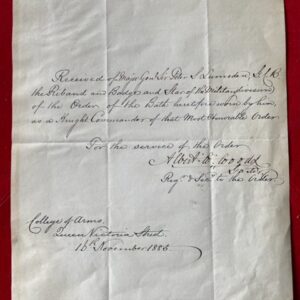 Received of Major Genl Sir Peter S. Lumsden, G.C.B.
the Riband and Badge and Star of the Military division
of the Order of the Bath heretofore worn by him,
as a Knight Commander of that Most Honorable Order.
For the service of the Order
Albert W. Woods
Regr & Secy to the Order.
College of Arms.
Queen Victoria Street.
16th November 1885